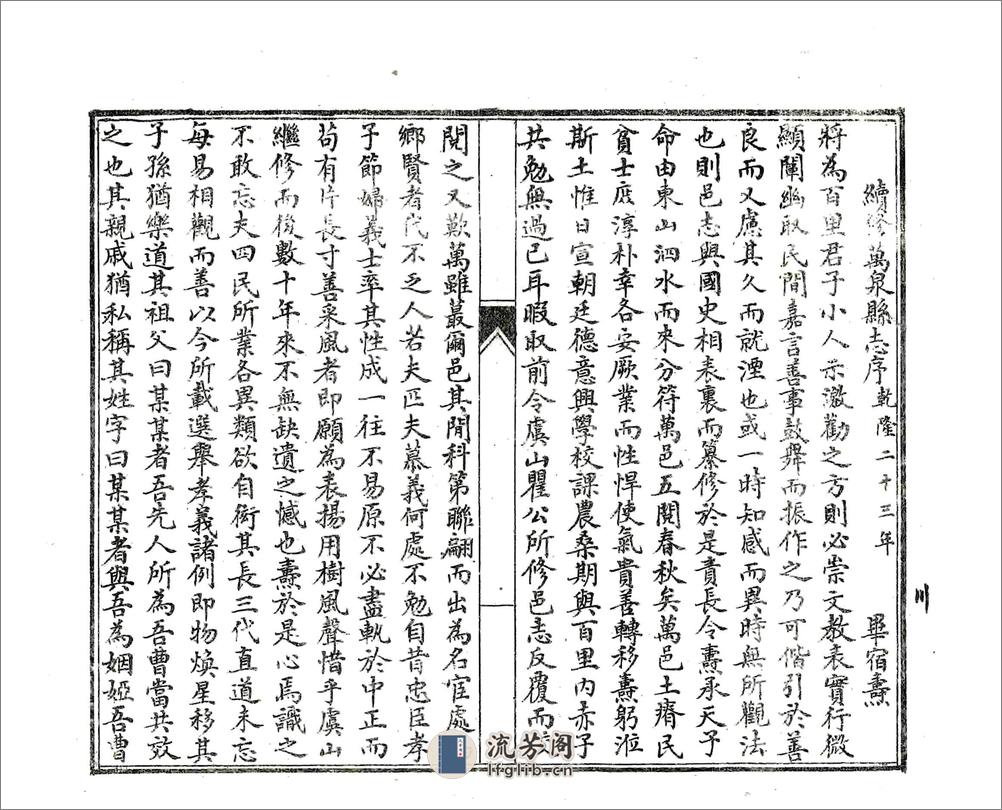 續修萬泉縣志序乾隆二十三年 畢宿燾
將為百里君子小人示激勸之方則必崇文教表實行微
顯闡幽取民間嘉言善事鼓舞而振作之乃可偕引於善
良而又慮其久而就湮也或一時知感而異時無所觀法
也則邑志與國史相表裏而纂修於是責長令燾承天子
命由東山泗水而來分符萬邑五閱春秋矣萬邑土瘠民
貧士庶淳朴幸各安厥業而性悍使氣貴善轉移燾躬涖
斯土惟日宣朝廷德意興學校課農桑期與百里內赤子
共勉無過已耳暇取前令虞山瞿公所修邑志反覆而
閱之又歎萬雖蕞爾邑其間科第聯翩而出為名宦處
鄉賢者代不乏人若夫匹夫慕義何處不勉自昔忠臣孝
子節婦義士率其性成一往不易原不必盡軌於中正而
苟有片長寸善采風者即願為表揚用樹風聲惜乎虞山
繼修而後數十年來不無缺遺之憾也燾於是心焉識之
不敢忘夫四民所業各異類欲自衒其長三代直道未忘
每易相觀而善以今所載選舉孝義諸例即物煥星移其
子孫猶樂道其祖父曰某某者吾先人所為吾曹當共效
之也其親戚猶私稱其姓字曰某某者與吾為姻婭吾曹
川
流芳阁
lfglib.cn